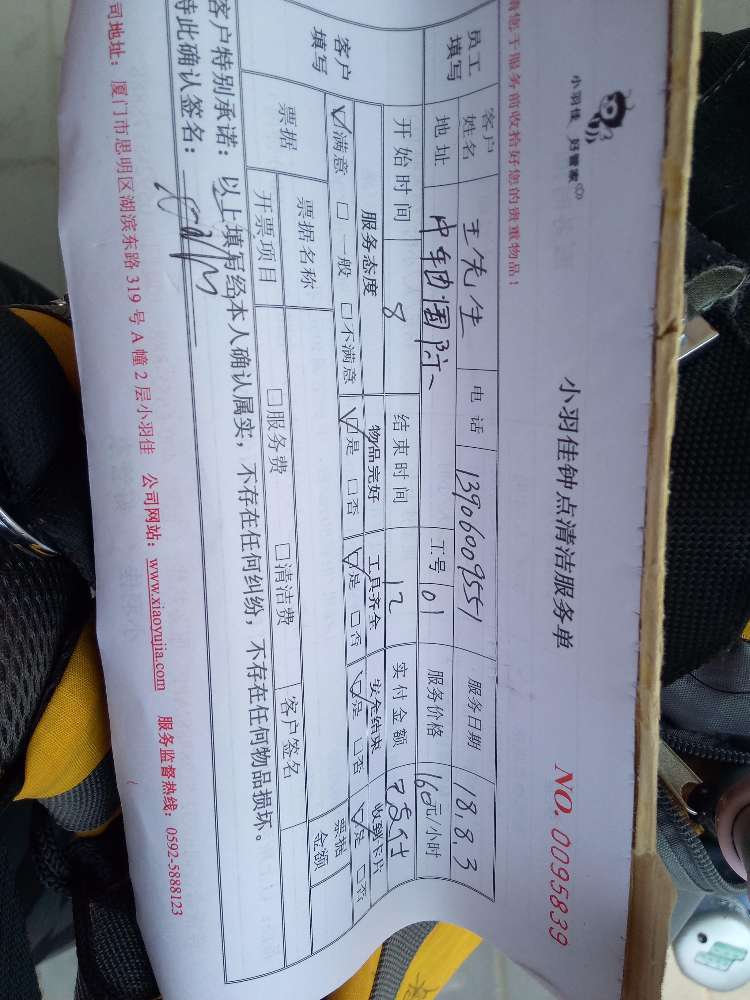 小羽佳 好管家
小羽佳钟点清洁服务单
NO. 0095839
请您于服务前收拾好您的贵重物品！
员工填写 客户姓名 王先生 电话 13906009551 服务日期 18.8.3
地址 工号 01 服务价格 160元/小时
客户填写 开始时间 8 结束时间 12 实付金额
服务态度 物品完好 工具齐全 安全结束 收到卡片
☑满意 □一般 □不满意 ☑是 □否 ☑是 □否 ☑是 □否 ☑是 □否
票据 票据名称 票据金额
开票项目 □服务费 □清洁费 客户签名
客户特别承诺：以上填写经本人确认属实，不存在任何纠纷，不存在任何物品损坏。
特此确认签名：
司地址：厦门市思明区湖滨东路 319 号 A 幢 2 层小羽佳 公司网站：www.xiaoyujia.com 服务监督热线：0592-5888123